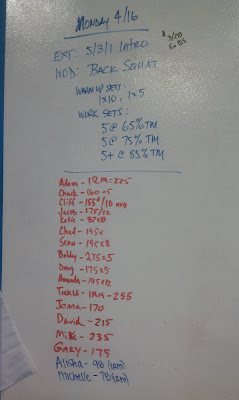 Monday 4/16
EXT: 5/3/1 INTRO
WOD: BACK SQUAT
WARMUP SETS:
1x10, 1x5
WORK SETS:
5@65%TM
5@75%TM
5+@85%TM
Adam - 1RM=225
Chuck - 160x5
Cliff - 155#/10
Jacob - 175/12
Katie - 87x8
Chad - 195x
Sean - 195x8
Bobby - 275x5
Doug - 175x5
Amanda - 145x12
Tickle - 1RM - 255
Jenna - 170
David - 215
Mike - 235
GARY - 175
Alisha - 98 (1RM)
Michelle - 78 (1RM)